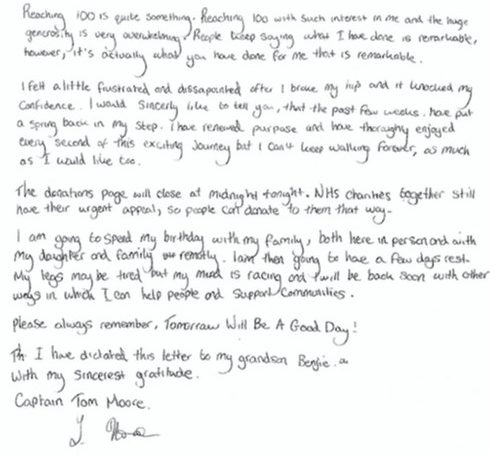 Reaching 100 is quite something. Reaching 100 with such interest in me and the huge
generosity is very overwhelming. People keep saying what I have done is remarkable,
however, it's actually what you have done for me that is remarkable.
I felt a little frustrated and dissapointed after I broke my hip and it knocked my
confidence. I would sincerly like to tell you, that the past few weeks have put
a spring back in my step. I have renewed purpose and have thoroughly enjoyed
every second of this exciting journey but I can't keep walking forever, as much
as I would like too.
The donations page will close at midnight tonight. NHS Charities together still
have their urgent appeal, so people can donate to them that way-
I am going to spend my birthday with my family, both here in person and with
my daughter and family remotly. I am then going to have a few days rest.
My legs may be tired but my mind is racing and I will be back soon with other
ways in which I can help people and support communities.
Please always remember, Tomorrow Will Be A Good Day!
I have dictated this letter to my grandson Benjie.
With my sincerest gratitude.
Captain Tom Moore.